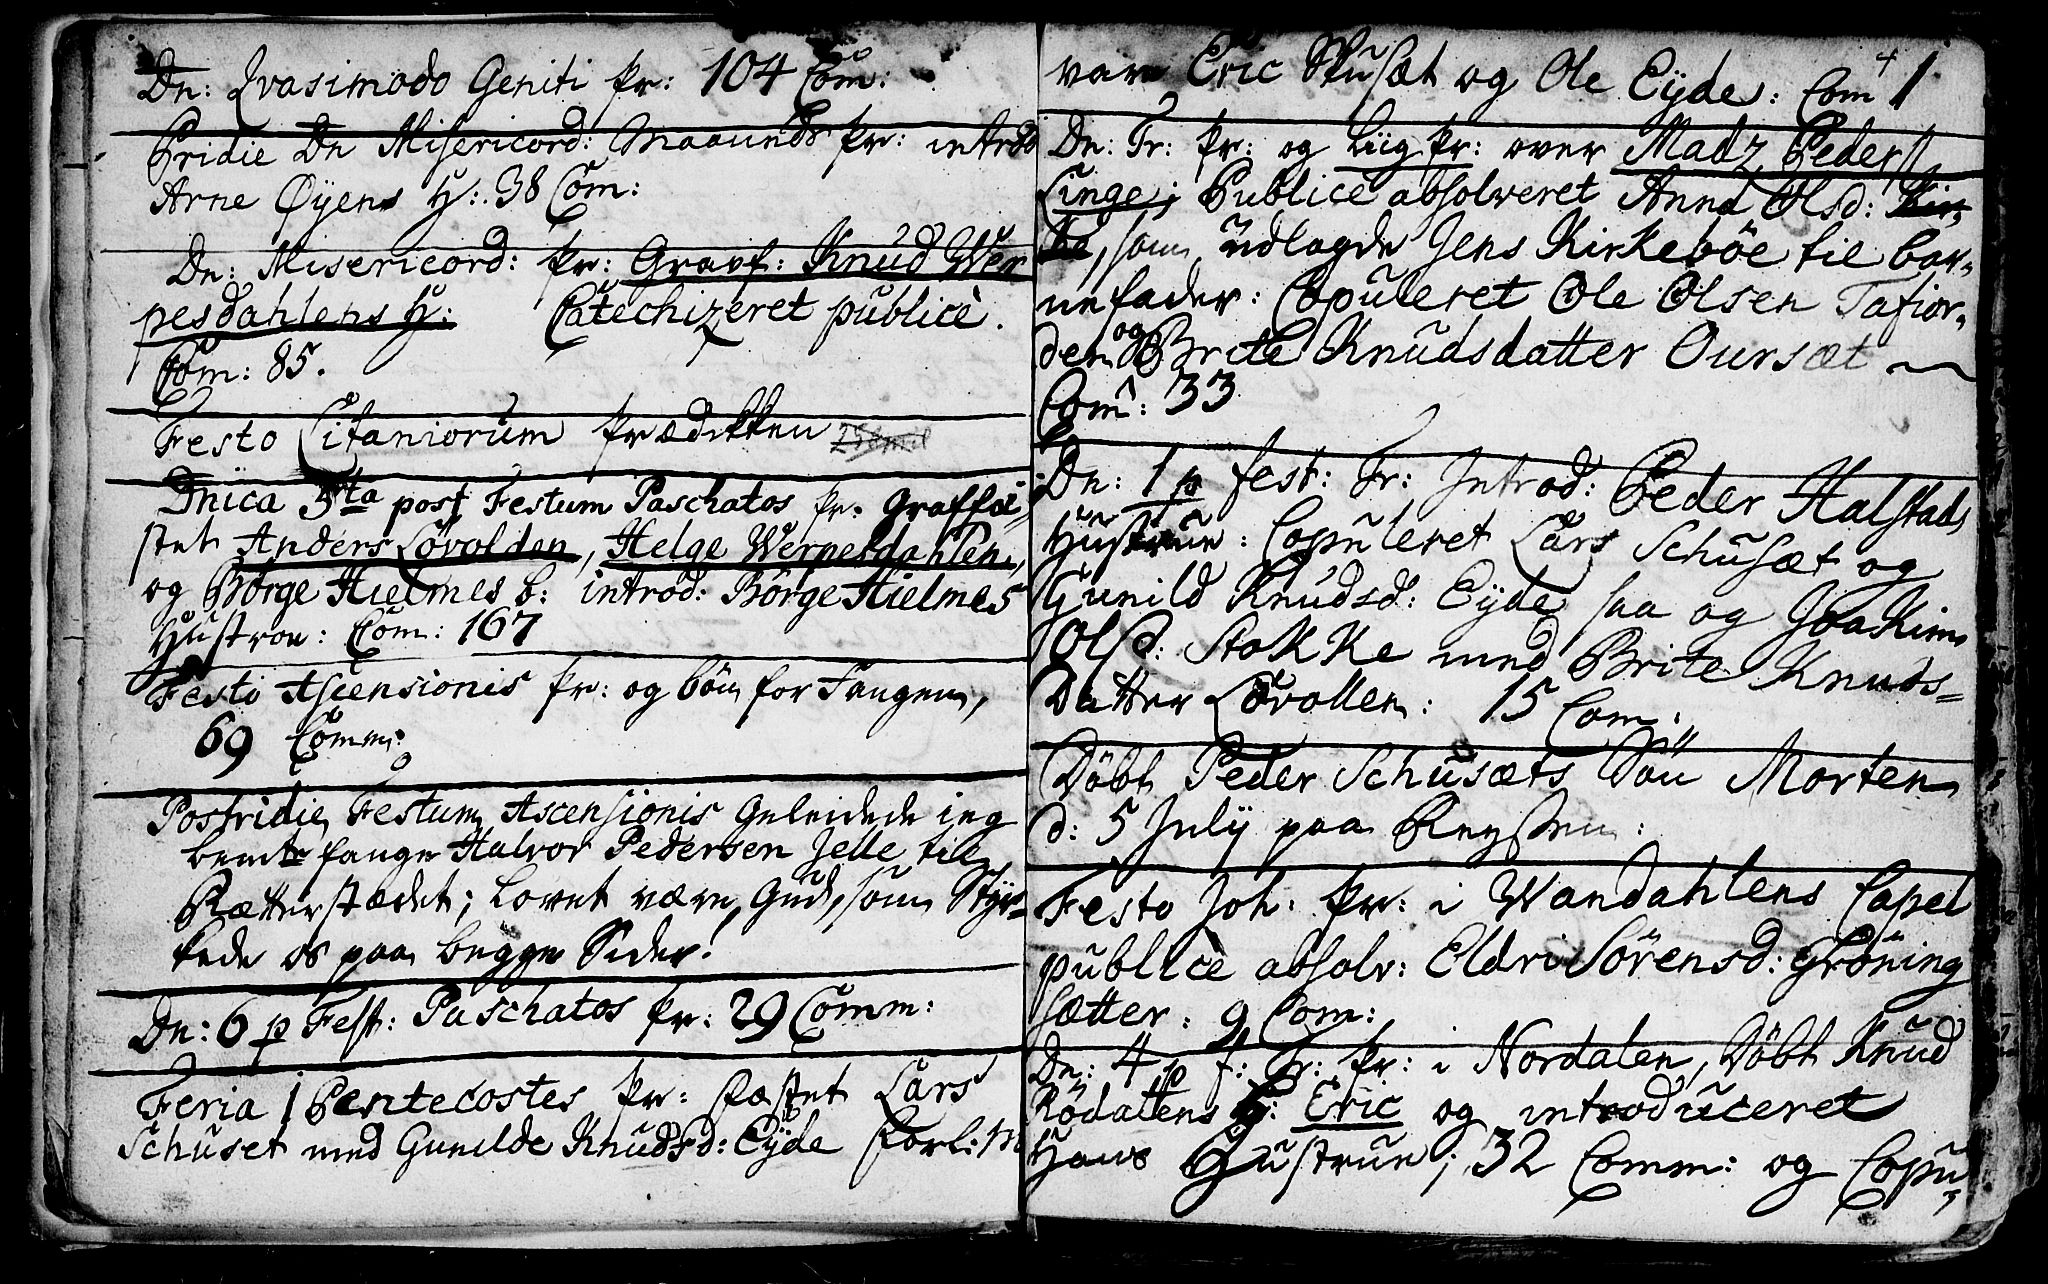 Dn: Qvasimodo Geniti pr: 104 Com:
Pridie Dn Misericord: Maaunds pr: introd
Arne Øyens H: 38 Com:
Dn: Misericord: pr: Gravf: Knud Wer
pesdahlens H: Catechizeret publicè.
Com: 85.
Festo Litaniorum prædikken
Dnica 5ta post Festum Paschatos pr: Graffæ-
stet Anders Lövolden, Helge Werpesdahlen,
og Börge Hielmes b: introd: Börge Hielmes
Hustroe: Com: 167
Festo Ascensionis pr: og bön for Fangen,
69 Comm:
Postridie Festum Ascensionis Geleidede ieg
bemte fange Halvor Pedersen Jelle til
Rætterstædet; Lovet være Gud, som Styr-
kede os paa begge Sider!
Dn: 6 p Fest: Paschatos pr: 29 Comm:
Feria 1 Pentecostes pr: fæstet Lars
Schuset med Gunilde Knudsd: Eyde forl:
4
vare Eric Skusæt og Ole Eyde: Com 1
Dn: Tr: pr: og Liig pr: over Madz Peders
Linge; Publicè absolveret Anna Olsd:
som udlagde Jens Kirkeböe til bar-
nefader: Copuleret Ole Olsen Tafior-
den og Brite Knudsdatter Oursæt
Com: 33
Dn: 1 p fest: Tr: Introd: Peder Halstads
Hustrue: Copuleret Lars Schusæt og
Gunild Knudsd: Eyde, saa og Joakim
Olsd: Stokke med Brite Knuds-
Datter Lövollen: 15 Com:
Döbt Peder Schusæts Sön Morten
d: 5 July paa Reysen:
Festo Joh: pr: i Wandahlens Capel
publicè absolv: Eldri Sörensd: Gröning
sætter: 9 Com:
Dn: 4 p f: Tr: pr: i Nordalen, Döbt Knud
Rödallens b: Eric og introduceret
Hans Hustrue; 32 Comm: og Copu-